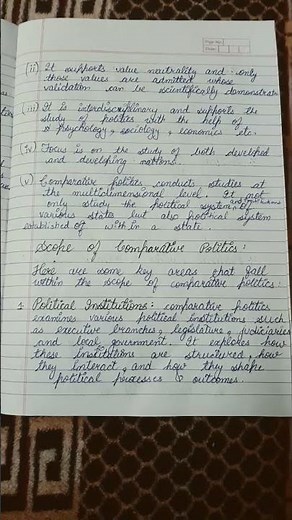 Page No.
Date
(ii) It supports value neutrality and only
those values are admitted whose
validation can be scientifically demonstrated
(iii) It is interdisciplinary and supports the
study of politics with the help of
psychology, sociology, economics etc.
(iv) Focus is on the study of both developed
and developing nations.
(v) Comparative politics conducts studies at
the multidimensional level. It not
only study the political system of
various states but also political system
established of within a state.
Scope of Comparative Politics:
Here are some key areas that fall
within the scope of comparative politics:
1 Political Institutions: comparative politics
examines various political institutions such
as executive branches, legislature, judiciaries
and local government. It explores how
these institutions are structured, how
they interact, and how they shape
political processes & outcomes.